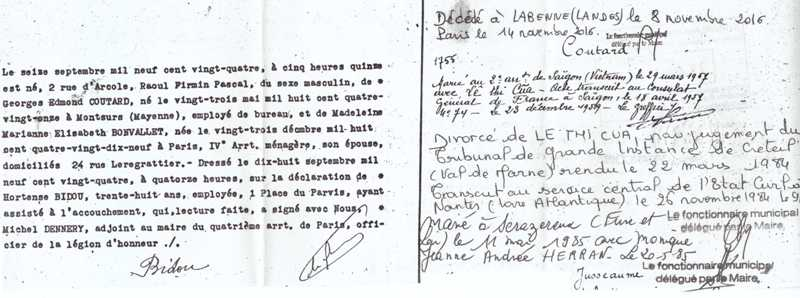 Le seize septembre mil neuf cent vingt-quatre, à cinq heures quinze
est né, 2 rue d'Arcole, Raoul Firmin Pascal, du sexe masculin, de
Georges Edmond COUTARD, né le vingt-trois mai mil huit cent quatre-
vingt-onze à Montsurs (Mayenne), employé de bureau, et de Madeleine
Marianne Elisabeth BONVALLET, née le vingt-trois décmbre mil huit
cent quatre-vingt-dix-neuf à Paris, IV° Arrt. ménagère, son épouse,
domiciliés 24 rue Leregrattier.- Dressé le dix-huit septembre mil
neuf cent vingt-quatre, à quatorze heures, sur la déclaration de
Hortense BIDOU, trente-huit ans, employée, 1 Place du Parvis, ayant
assisté à l'accouchement, qui, lecture faite, a signé avec Nous,
Michel DENNERY, adjoint au maire du quatrième arrt. de Paris, offi-
cier de la légion d'honneur ./.
Bidou
Décédé à LABENNE (LANDES) le 8 novembre 2016
Paris le 14 novembre 2016.
Le fonctionnaire
délégué par le Maire
Coutard
1755
Marié au 2e arrt de Saïgon (Vietnam) le 29 mars 1957
avec Lê thi Cua - Acte transcrit au Consulat
Général de France à Saïgon le 18 avril 1957
n° 74 - le 23 décembre 1959 - le greffier
Divorcé de LE THI CUA, par jugement du
Tribunal de grande Instance de Creteil
(Val de Marne) rendu le 22 mars 1984
Transcrit au service central de l'Etat Civil à
Nantes (Loire Atlantique) le 26 novembre 1984
Marié à Serazereux (Eure et
Loir) le 11 mai 1985 avec Monique
Jeanne Andrée HERRAN. Le 20-5-85
Le fonctionnaire municipal
délégué par le Maire,
Jusseaume
Le fonctionnaire municipal
délégué par le Maire,